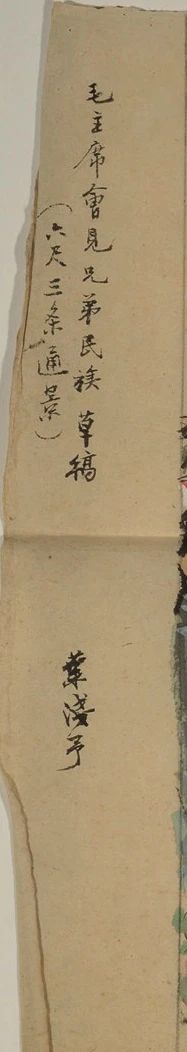 毛主席會見兄弟民族草稿
（六尺三条通景）
葉浅予